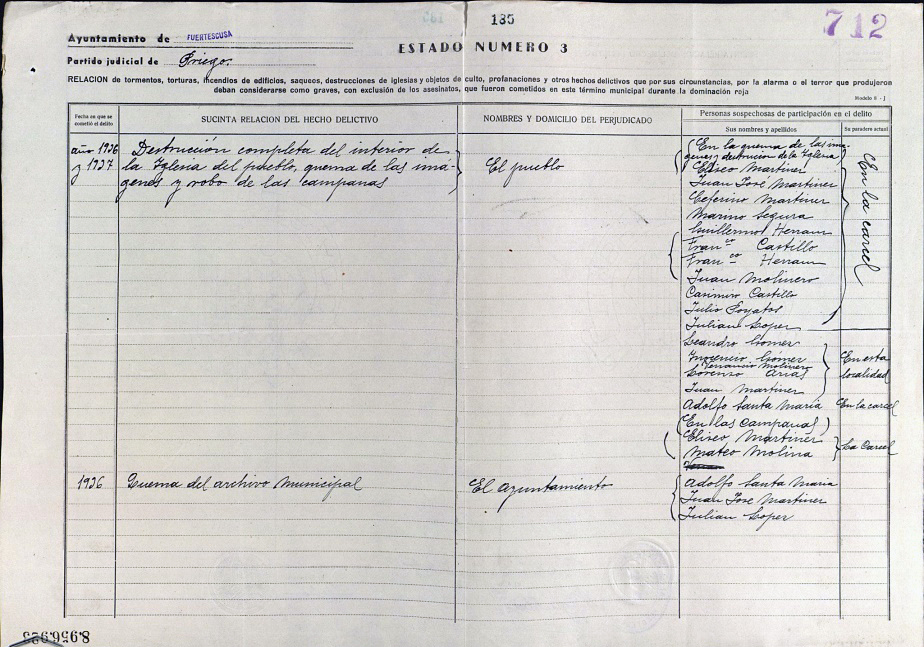 135
712
Ayuntamiento de FUERTESCUSA
ESTADO NUMERO 3
Partido judicial de Priego.
RELACION de tormentos, torturas, incendios de edificios, saqueos, destrucciones de iglesias y objetos de culto, profanaciones y otros hechos delictivos que por sus circunstancias, por la alarma o el terror que produjeron
deban considerarse como graves, con exclusión de los asesinatos, que fueron cometidos en este término municipal durante la dominación roja
Modelo 8 - J
Fecha en que se cometió el delito
SUCINTA RELACION DEL HECHO DELICTIVO
NOMBRES Y DOMICILIO DEL PERJUDICADO
Personas sospechosas de participación en el delito
Sus nombres y apellidos
Su paradero actual
año 1936 y 1937
Destrucción completa del interior de
la Iglesia del pueblo, quema de las imá-
genes y robo de las campanas
El pueblo
(En la quema de las ima-
genes y destrucion de la Yglesia)
Eliseo Martinez
Juan José Martinez
Ceferino Martinez
Marino Segura
Guillermo Herraiz
Fran.co Castillo
Fran.co Herraiz
Juan Molinero
Casimiro Castillo
Julio Poyatos
Julian Lopez
En la carcel
Leandro Gómez
Inocencio Gómez
Venancio Molinero
Lorenzo Arias
Juan Martinez
En esta
localidad
Adolfo Santa Maria
En la carcel
(En las Campanas)
Eliseo Martinez
Mateo Molina
La Carcel
1936
Quema del archivo municipal
El Ayuntamiento
Adolfo Santa Maria
Juan Jose Martinez
Julian Lopez
8.956.923